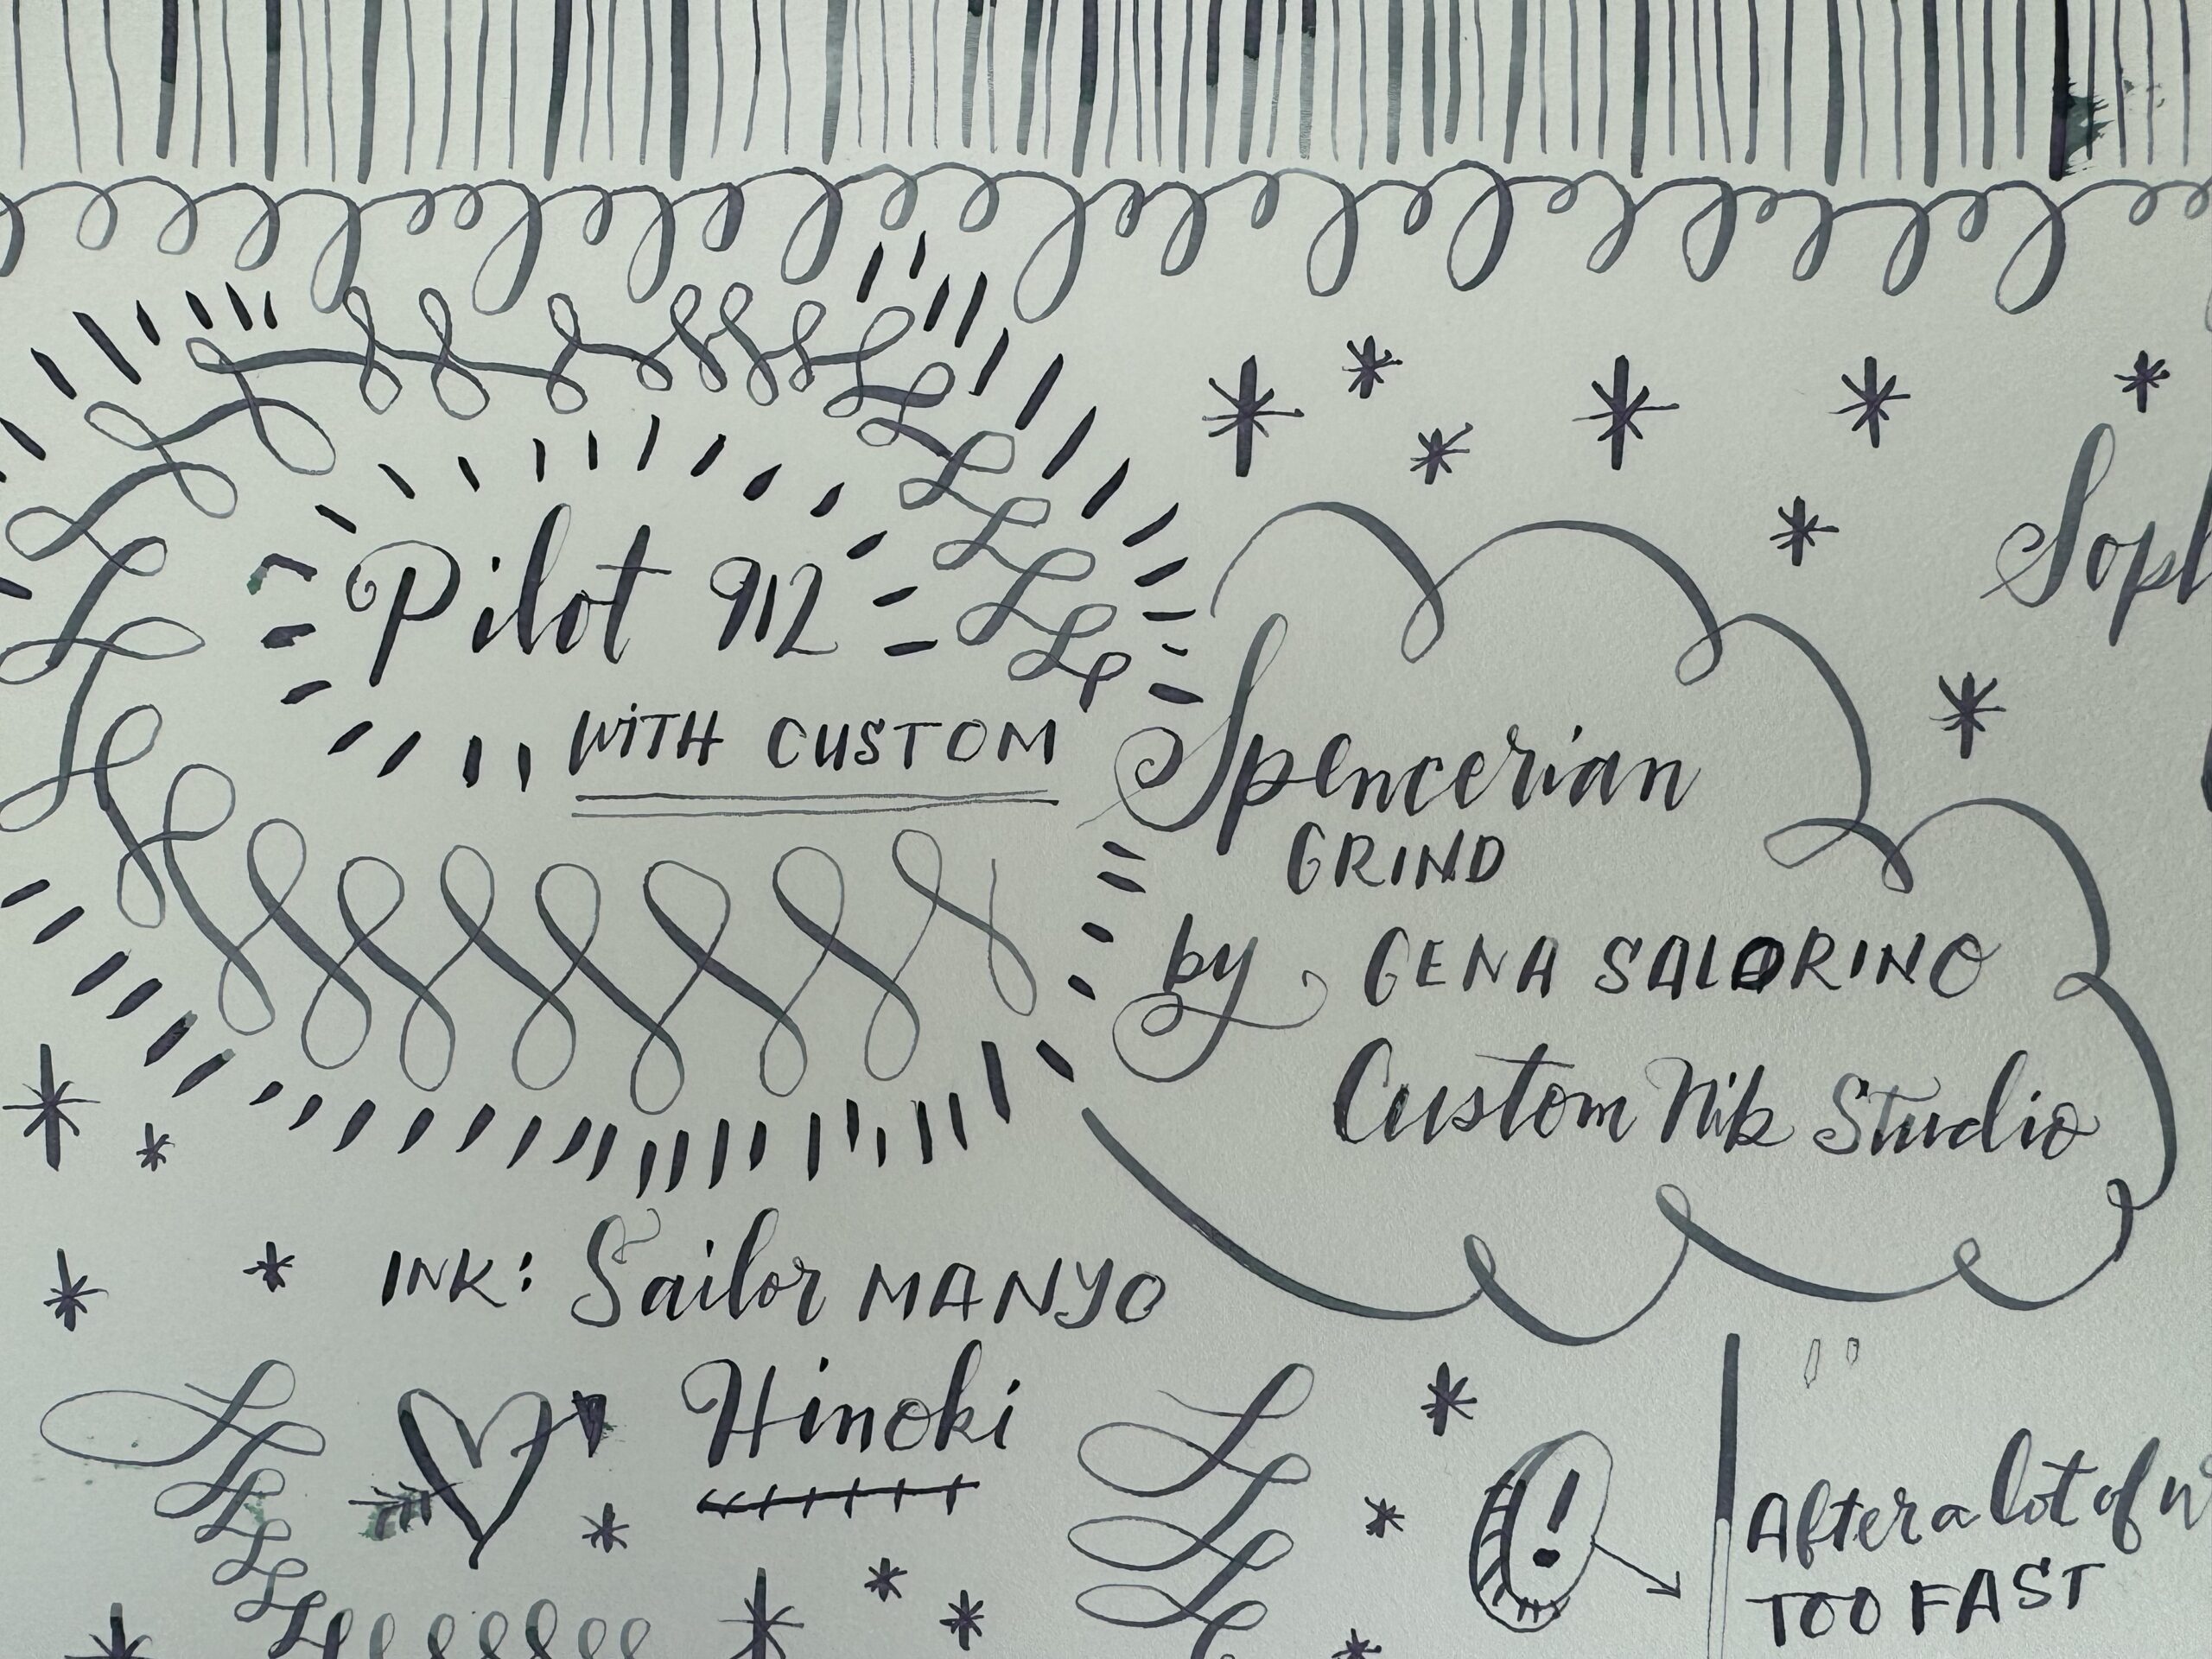 Pilot 912
WITH CUSTOM
Spencerian
GRIND
by GENA SALORINO
Custom Nib Studio
INK: Sailor MANYO
Hinoki
!
After a lot of
TOO FAST